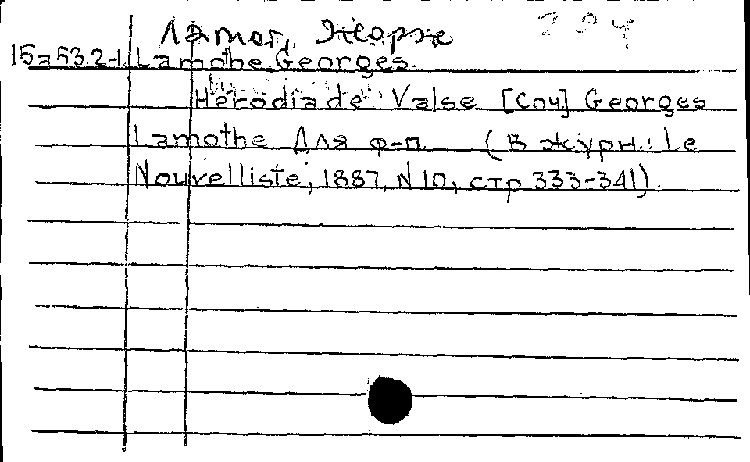 Ламот, Жорж
15a532-1 Lamothe Georges
Herodiade Valse [Соч] Georges
Lamothe Для ф-п. (В журн: Le
Nouvelliste, 1887, N 10, стр 333-341).